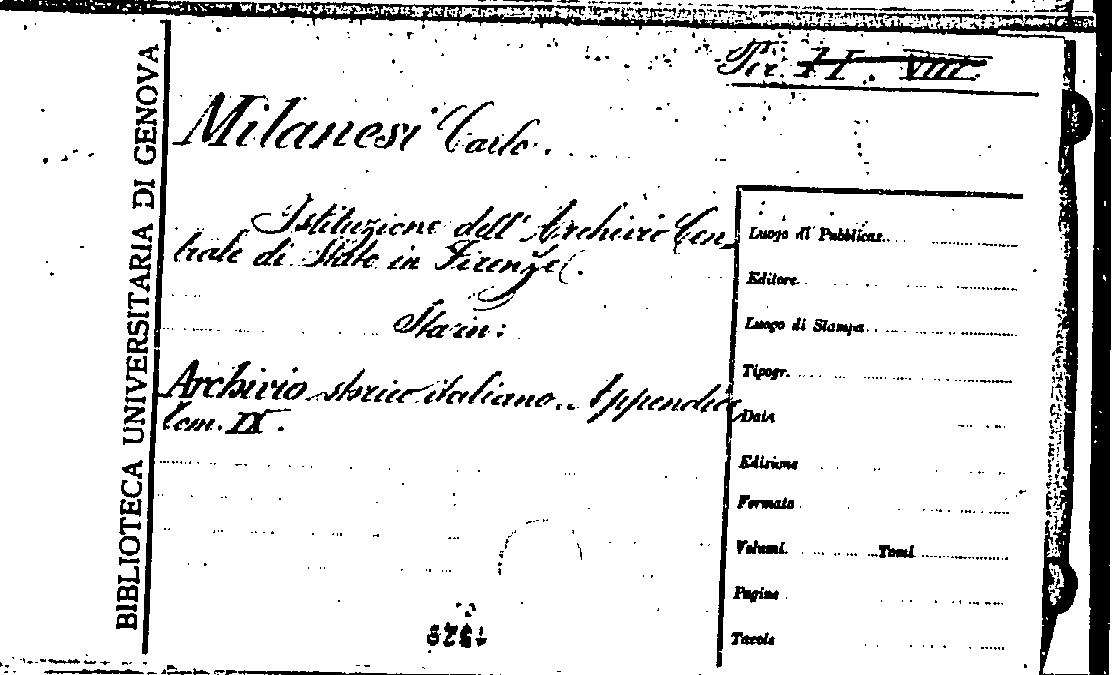 BIBLIOTECA UNIVERSITARIA DI GENOVA
Milanesi Carlo.
Istituzione dell'Archivio Cen_
trale di Stato in Firenze.
Sta in:
Archivio storico italiano.. Appendice
Tom. IX.
Luogo di Pubblicaz.
Editore
Luogo di Stampa
Tipogr.
Data
Edizione
Formato
Volumi. Tomi
Pagine
Tavole